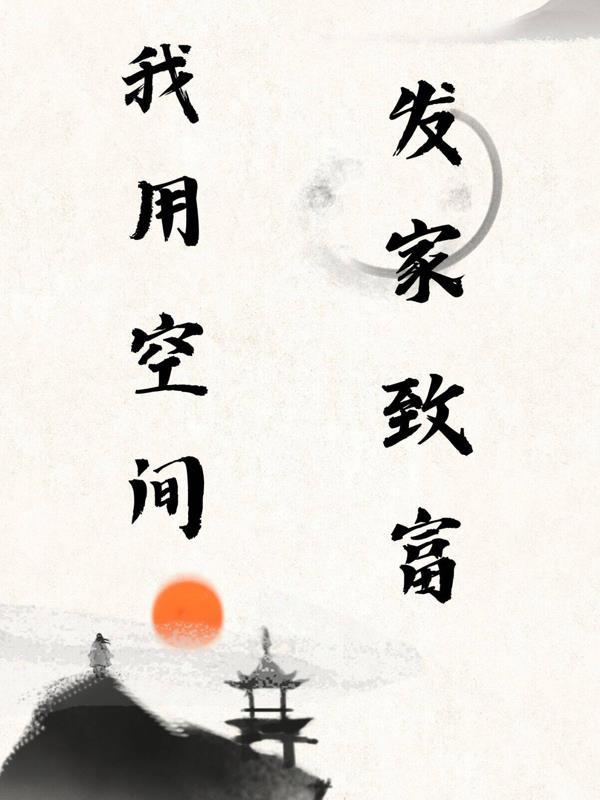 我用空间
发家致富